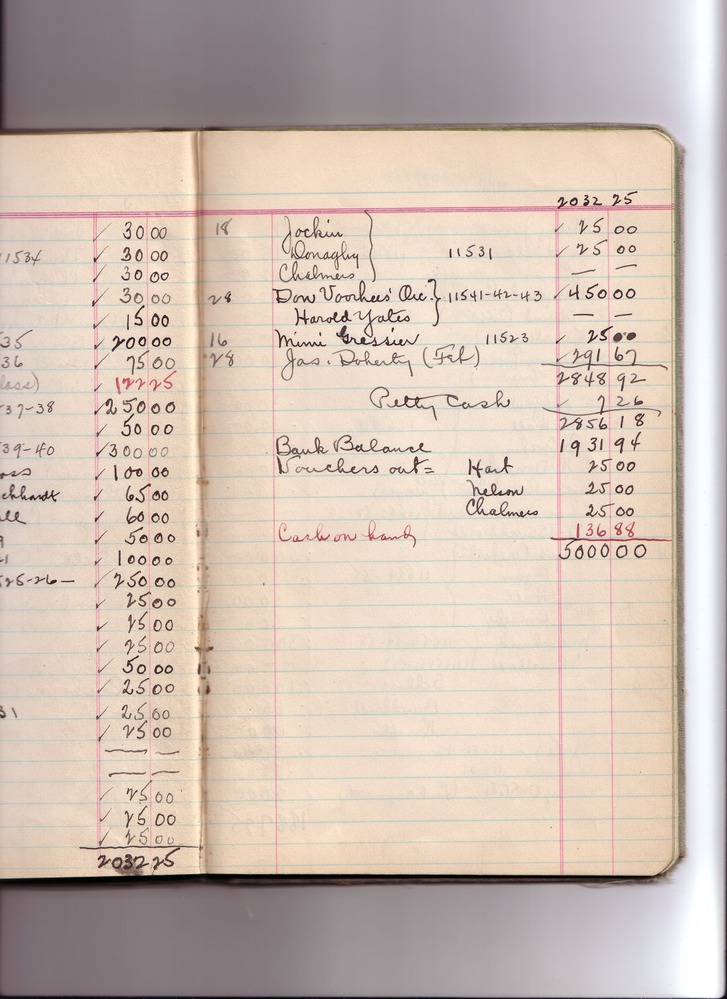 30 00
11534 30 00
30 00
30 00
15 00
35 200 00
36 75 00
122 25
37-38 250 00
50 00
39-40 300 00
100 00
65 00
60 00
9 50 00
100 00
525-26- 250 00
25 00
25 00
25 00
50 00
25 00
31 25 00
25 00
— —
— —
25 00
25 00
25 00
2032 25
2032 25
18 Jockin 25 00
Donaghy 11531 25 00
Chalmers — —
28 Don Voorhees' Orc. 11541-42-43 450 00
Harold Yates — —
16 Mimi Gressier 11523 25 00
28 Jas. Doherty (Feb) 291 67
2848 92
Petty Cash 7 26
2856 18
Bank Balance 1931 94
Vouchers out = Hart 25 00
Nelson 25 00
Chalmers 25 00
Cash on hand 136 88
5000 00